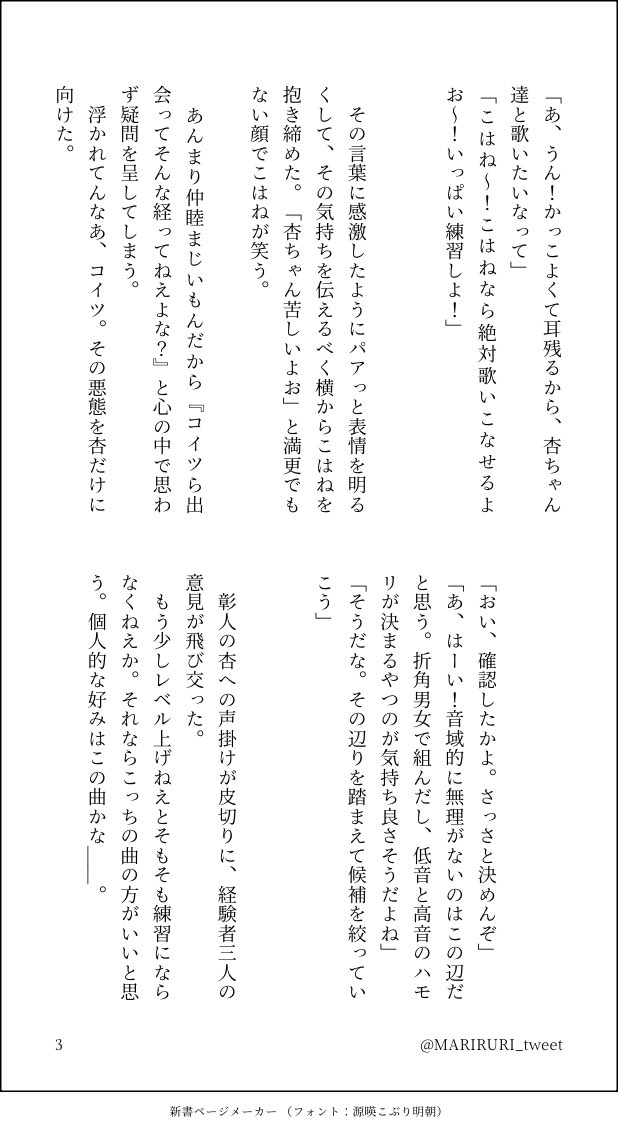 「あ、うん！かっこよくて耳残るから、杏ちゃん
達と歌いたいなって」
「こはね〜！こはねなら絶対歌いこなせるよ
お〜！いっぱい練習しよ！」
その言葉に感激したようにパアっと表情を明る
くして、その気持ちを伝えるべく横からこはねを
抱き締めた。「杏ちゃん苦しいよお」と満更でも
ない顔でこはねが笑う。
あんまり仲睦まじいもんだから『コイツら出
会ってそんな経ってねえよな？』と心の中で思わ
ず疑問を呈してしまう。
浮かれてんなあ、コイツ。その悪態を杏だけに
向けた。
「おい、確認したかよ。さっさと決めんぞ」
「あ、はーい！音域的に無理がないのはこの辺だ
と思う。折角男女で組んだし、低音と高音のハモ
リが決まるやつのが気持ち良さそうだよね」
「そうだな。その辺りを踏まえて候補を絞ってい
こう」
彰人の杏への声掛けが皮切りに、経験者三人の
意見が飛び交った。
もう少しレベル上げねえとそもそも練習になら
なくねえか。それならこっちの曲の方がいいと思
う。個人的な好みはこの曲かな――。
3
@MARIRURI_tweet
新書ページメーカー（フォント：源暎こぶり明朝）